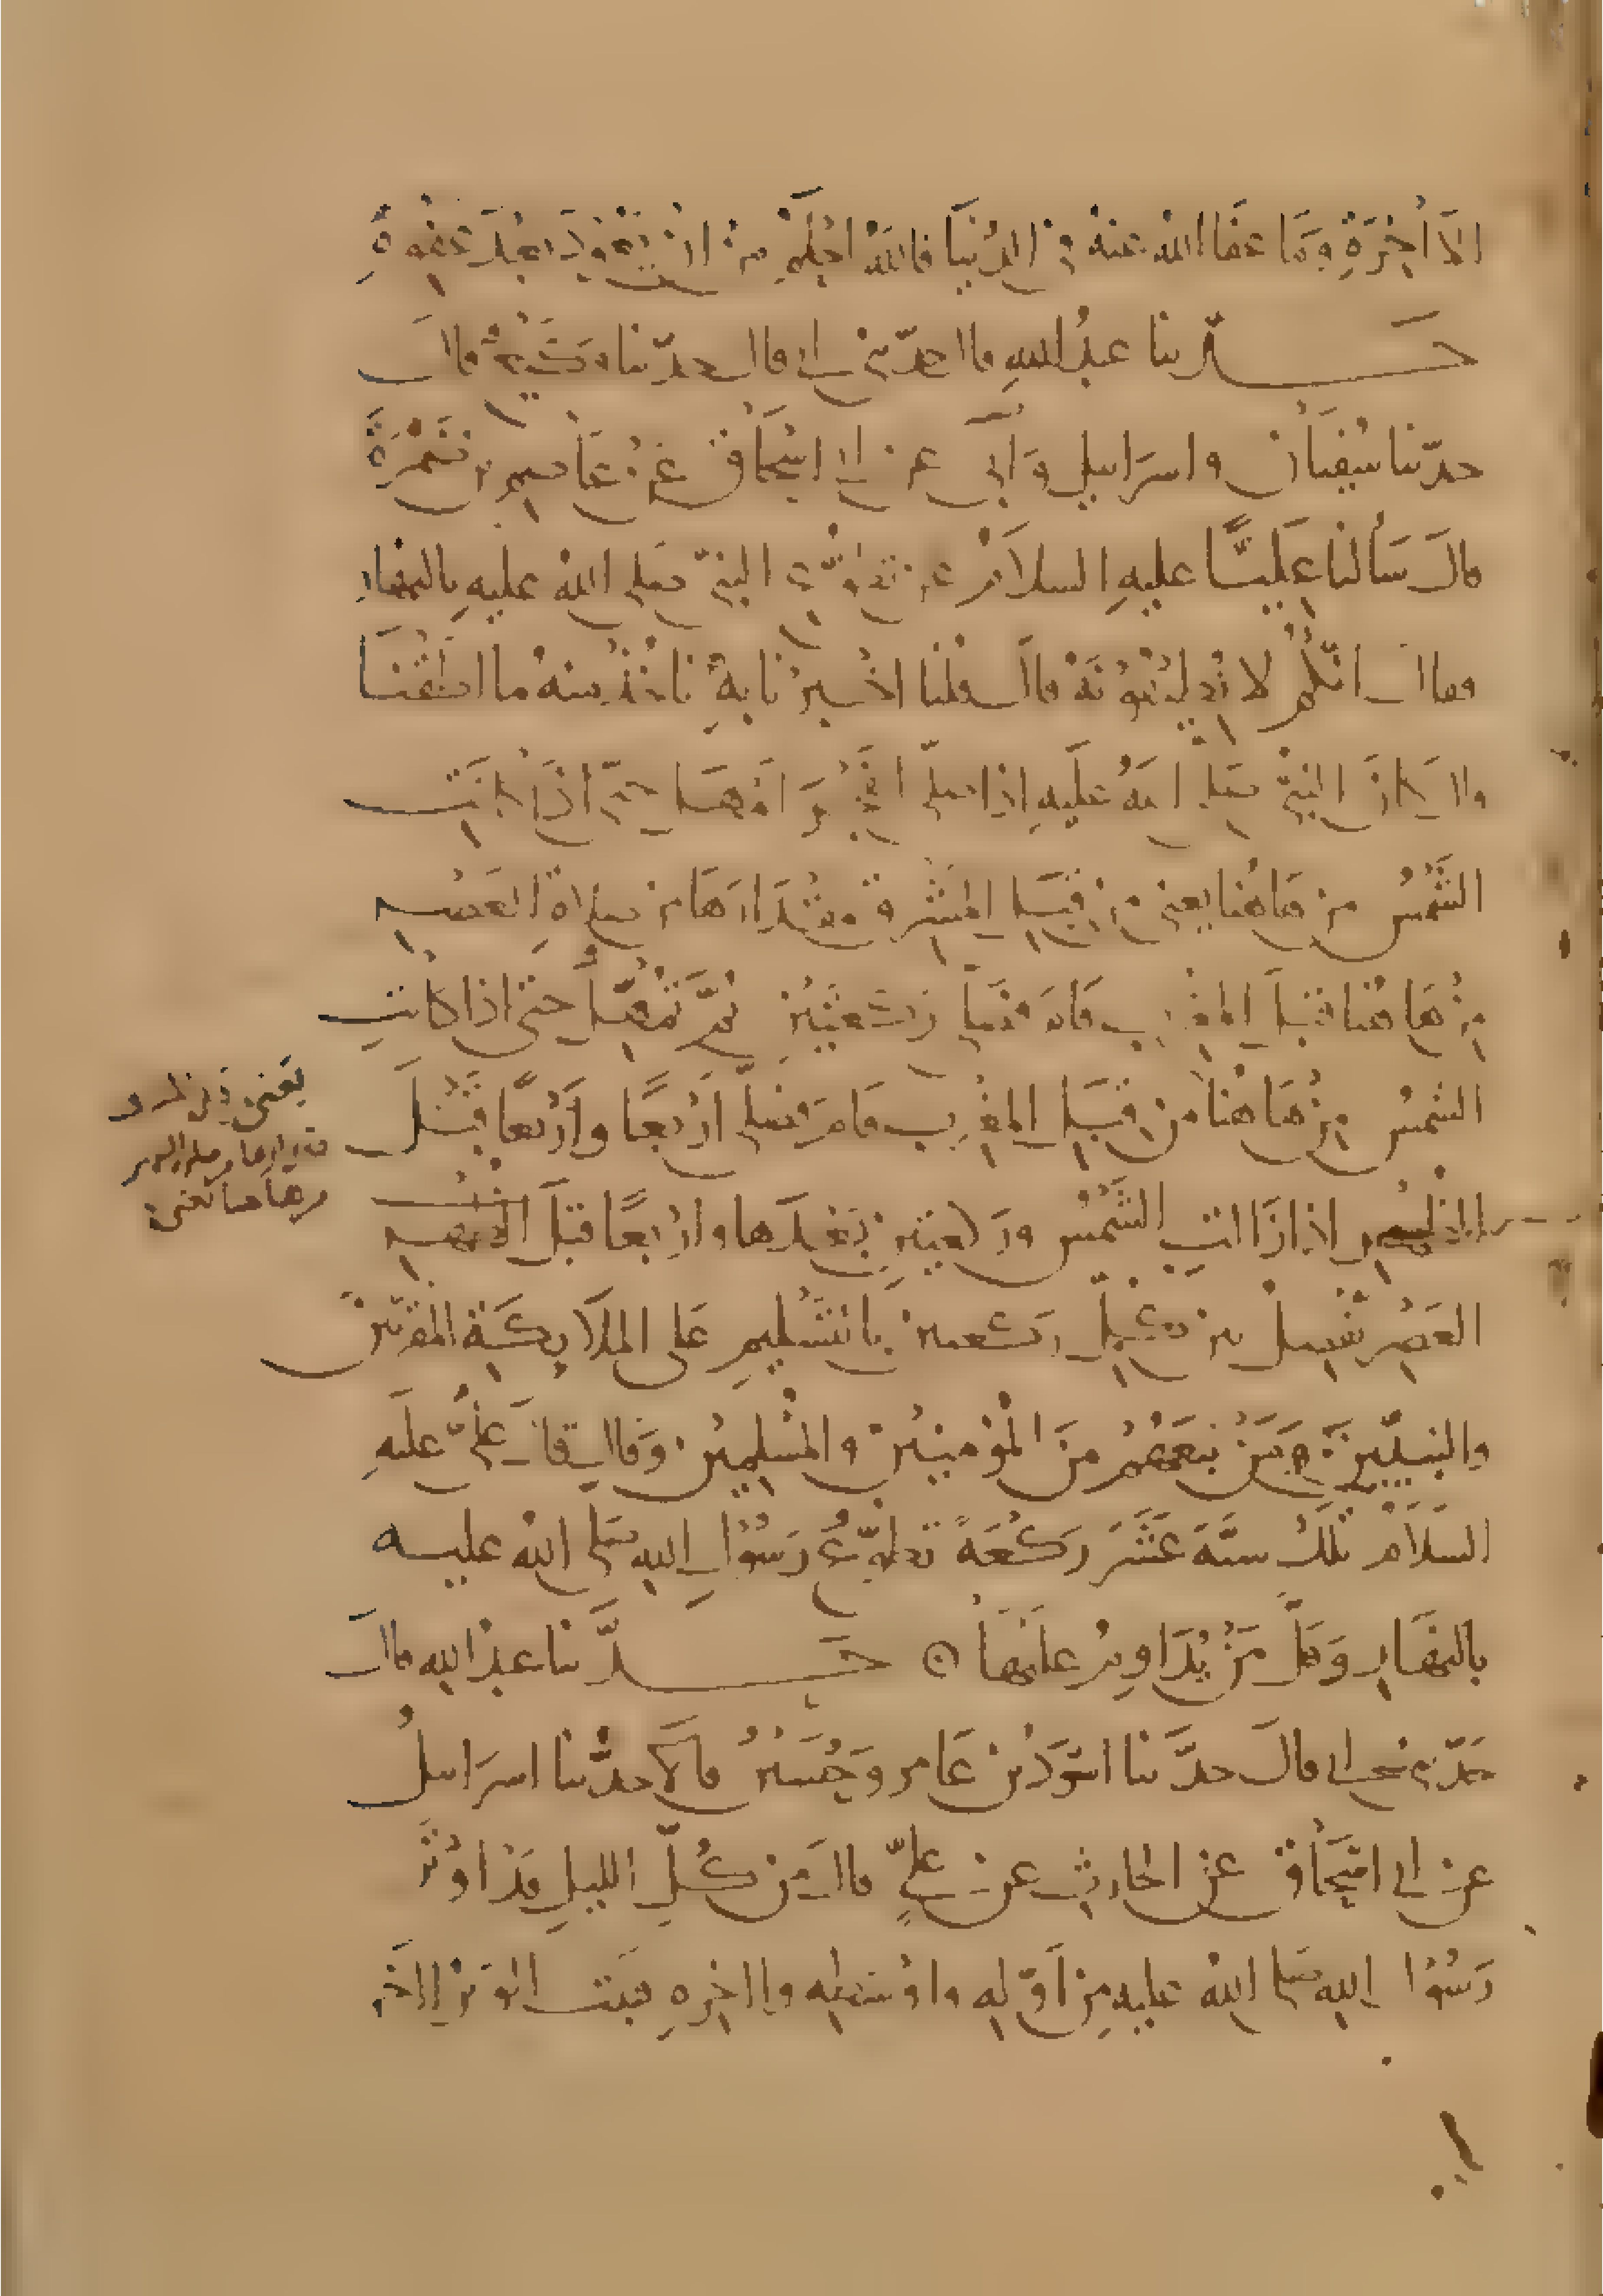 الآخِرَةِ وَمَا عَفَا الله عنه في الدُنيَا فالله احْلَمُ من ان يَعُودَ بَعْدَ عَفْوِهِ
حَدّثنا عبدُ اللهِ قال حدّثني ابي قال حدّثنا وَكيعٌ قال
حدّثنا سُفيَانُ واسرَائيل وَأَبي عن ابي اسْحَاقَ عَنْ عَاصِم بن ضَمْرَةَ
قالَ سَأَلنا عَلِيًّا عليهِ السلاَمْ عن تَطَوّعِ النبيّ صَلى اللهُ عليهِ بالنهَارِ
فقال انّكُمْ لا تُطِيْقُوْنَهُ قالَ قُلنَا اخْبِرْنَا بهِ نَأخُذْ مِنهُ ما اطَقْنَا
قال كَانَ النبيّ صَلى اللهُ عَلَيهِ اذا صلّى الفَجْرَ امْهَلَ حَتّى اذَا كَانَتِ
الشَّمْسُ من هَاهُنا يعني مِن قِبَلِ المَشْرِق مِقْدَارَهَا من صلاةِ العَصْرِ
مِنْ هَا هُنا قِبَلَ المغْرِبِ قَامَ فصَلّى رَكْعَتَيْنِ ثُمَّ تَمَهَّلُ حتى اذا كانتِ
الشمْسُ مِنْ هَا هُنا من قِبَلِ المغرِبِ قَامَ فصَلّى أَرْبعًا وأَرْبَعًا قَبْلَ
الظهر اذا زَالتِ الشَّمْسُ ورَكعتينِ بَعْدَها وارْبعًا قبْلَ
العَصْرِ يَفْصِلُ بين كُلِّ ركعتين بالتَّسْلِيمِ عَلى المَلَايِكَةِ المقرّبينَ
والنبيّينَ وَمَنْ تبِعَهُمْ مِنَ المُؤْمِنِيْنَ والمُسْلِمِيْنَ وَقال قال عَليّ عليهِ
السَلَامْ تلْكَ ستَّةَ عَشَرَ رَكْعَةً تطَوّعُ رَسُوْلِ اللهِ صَلى اللهُ عليه
بالنهَارِ وَقَلَّ مَنْ يُدَاوِمُ عَلَيْهَا حَدَّثنا عبدُ الله قالَ
حَدّثني ابي قالَ حدَّثنا اسْوَدُ بْن عَامر وَحُسَيْن قالَا حدَّثنا اسرَائيلُ
عن ابي اسْحَاقَ عَن الحارثِ عن عَليٍّ قالَ مِن كُلِّ الليلِ قَدْ اوْتَرَ
رَسُوْلُ اللهِ صَلى اللهُ عليه مِنْ أَوّلِه واوْسَطِه واخِرِهِ فثَبَتَ الوَتْرُ اخِرَ
يَعنى
من هاهنا يَعنى